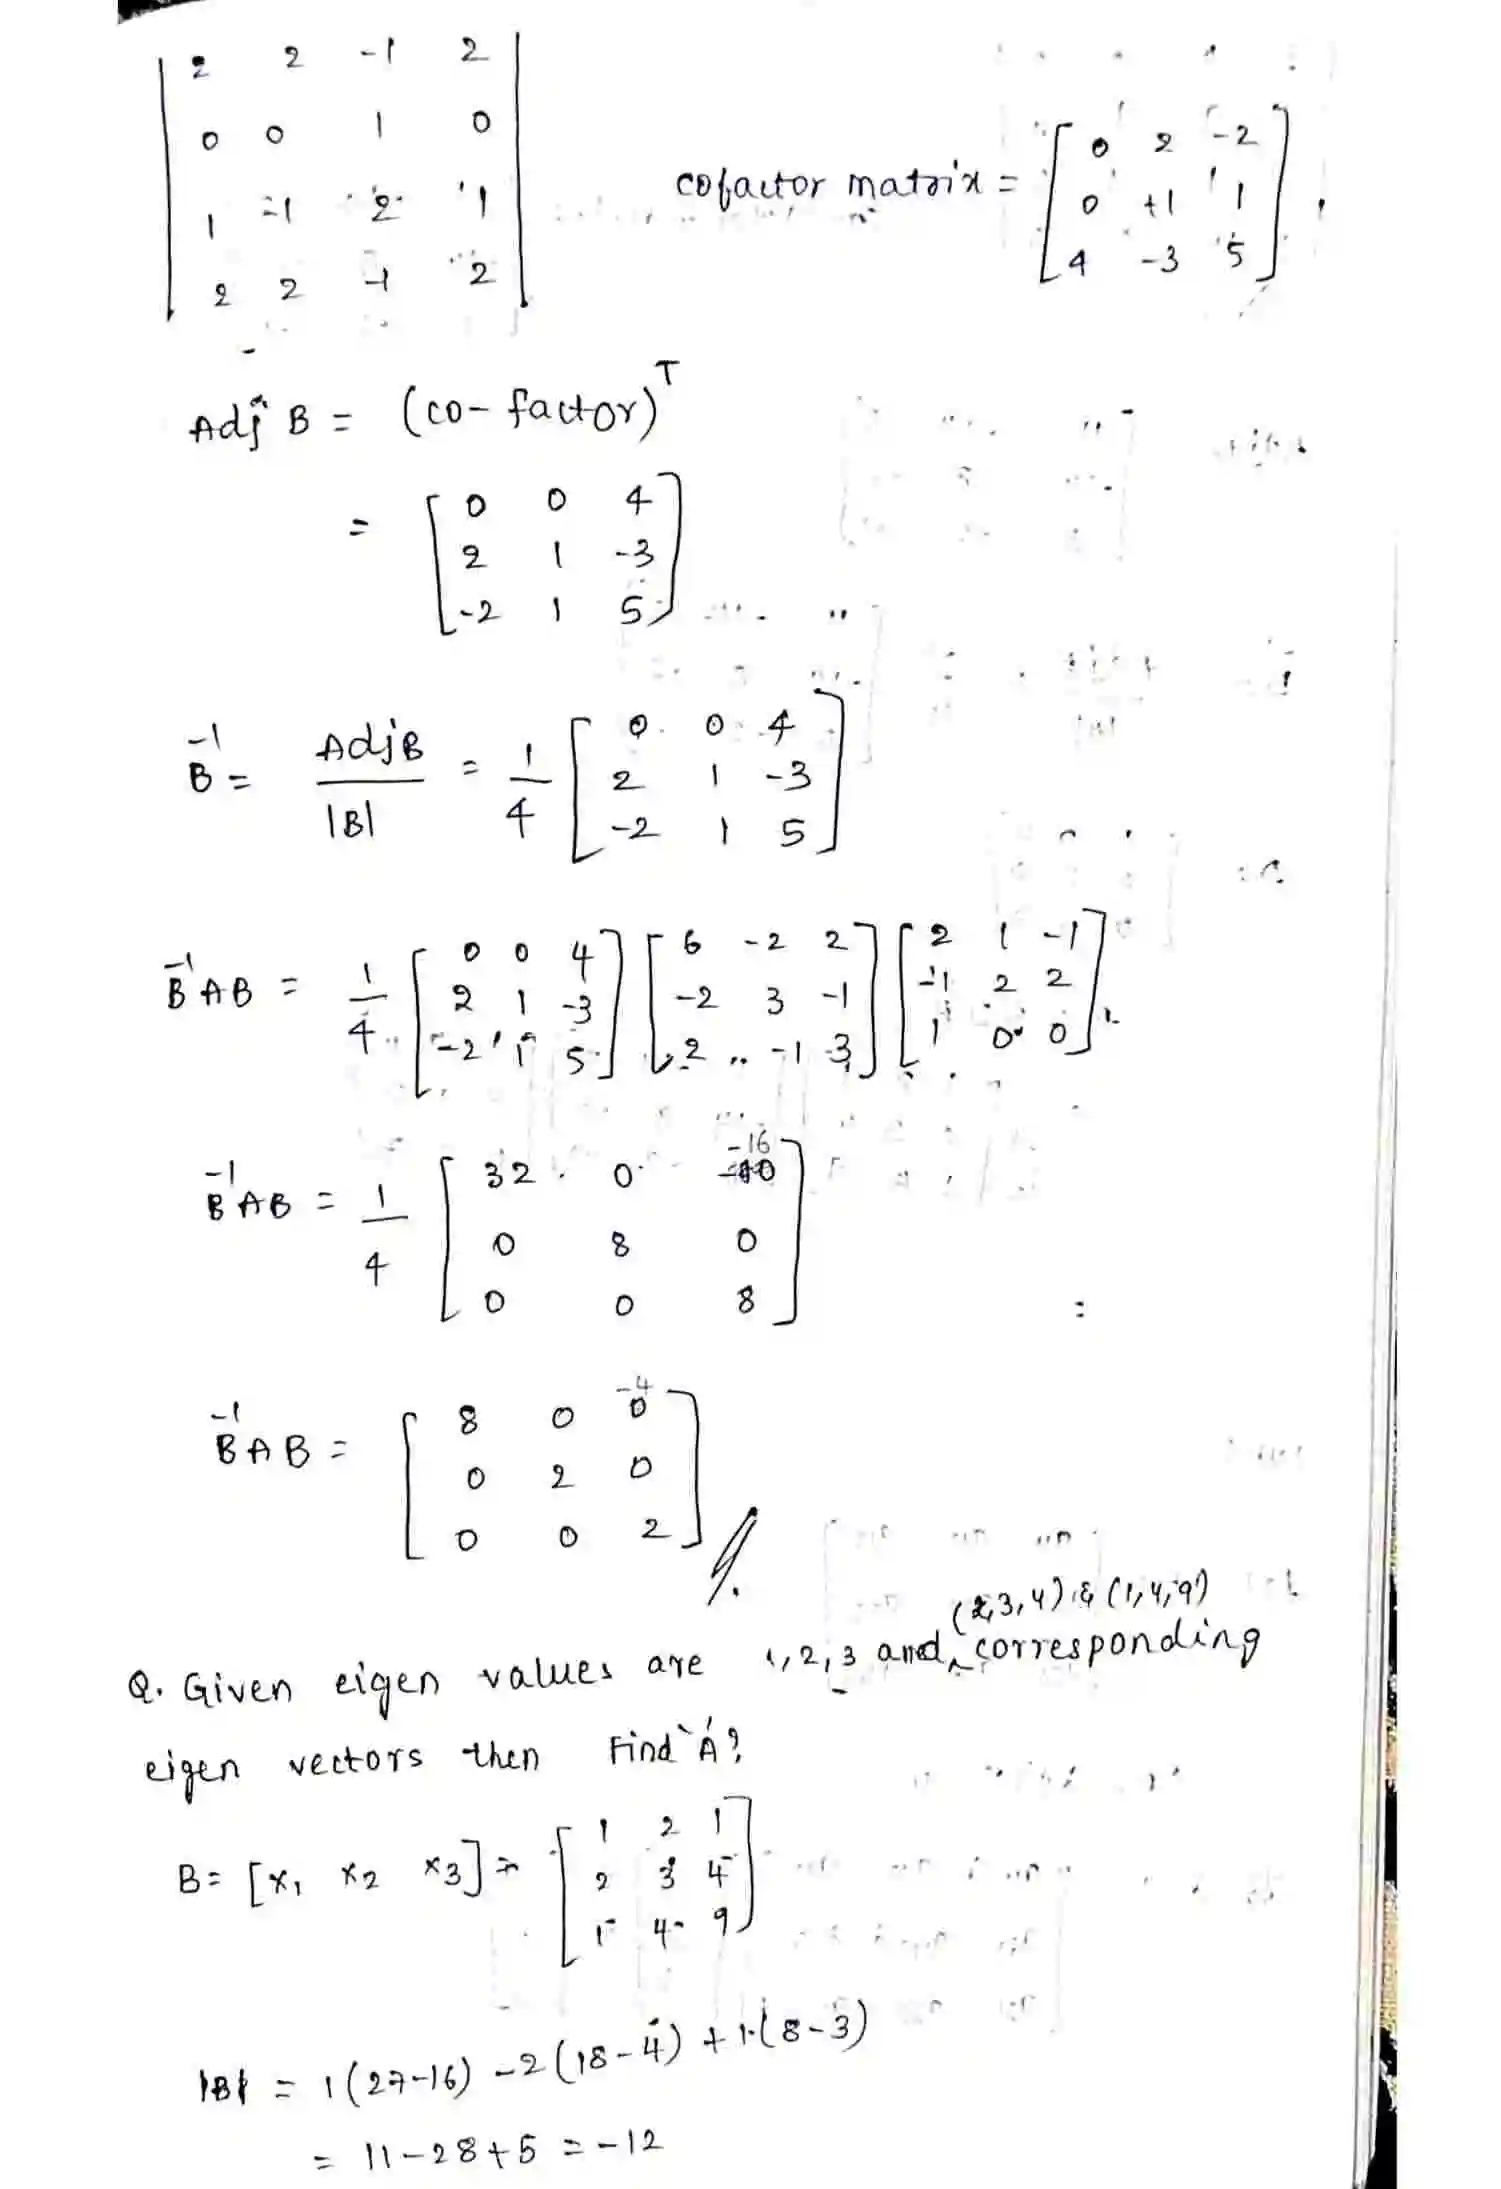 | 2 2 -1 2 |
| 0 0 1 0 |
| 1 -1 2 1 |
| 2 2 -1 2 |
cofactor matrix = [ 0 2 -2
0 +1 1
4 -3 5 ]
Adj B = (co-factor)^T
= [ 0 0 4
2 1 -3
-2 1 5 ]
B^-1 = AdjB / |B| = 1/4 [ 0 0 4
2 1 -3
-2 1 5 ]
B^-1 AB = 1/4 [ 0 0 4 ] [ 6 -2 2 ] [ 2 1 -1 ]
[ 2 1 -3 ] [ -2 3 -1 ] [ -1 2 2 ]
[ -2 1 5 ] [ 2 -1 3 ] [ 1 0 0 ]
B^-1 AB = 1/4 [ 32 0 -16
0 8 0
0 0 8 ]
B^-1 AB = [ 8 0 -4
0 2 0
0 0 2 ]
Q. Given eigen values are 1,2,3 and (2,3,4) & (1,4,9) corresponding
eigen vectors then Find 'A'?
B = [x₁ x₂ x₃] = [ 1 2 1
2 3 4
1 4 9 ]
|B| = 1(27-16) -2(18-4) +1·(8-3)
= 11-28+5 = -12